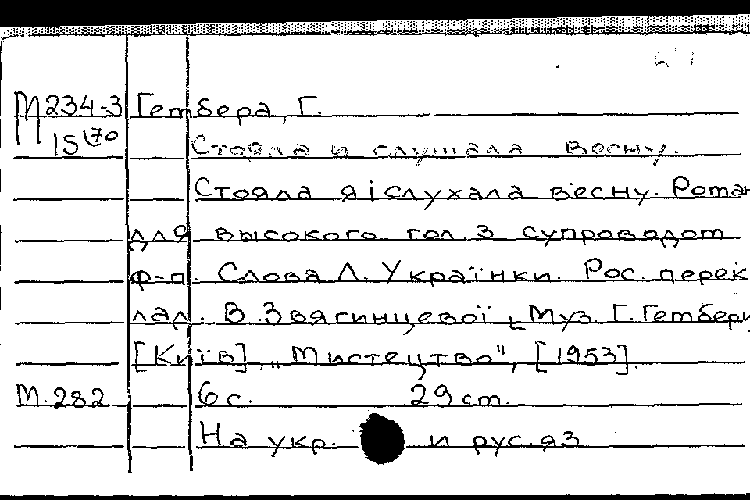 М234-3 Гембера, Г.
15170 Стояла и слушала весну.
Стояла я і слухала весну. Роман
для высокого гол. з супроводом
ф-п. Слова Л. Українки. Рос. перек
лад. В. Звягинцевої, Муз. Г. Гембери
[Київ], „Мистецтво", [1953].
М. 282 6 с. 29 см.
На укр. и рус. яз